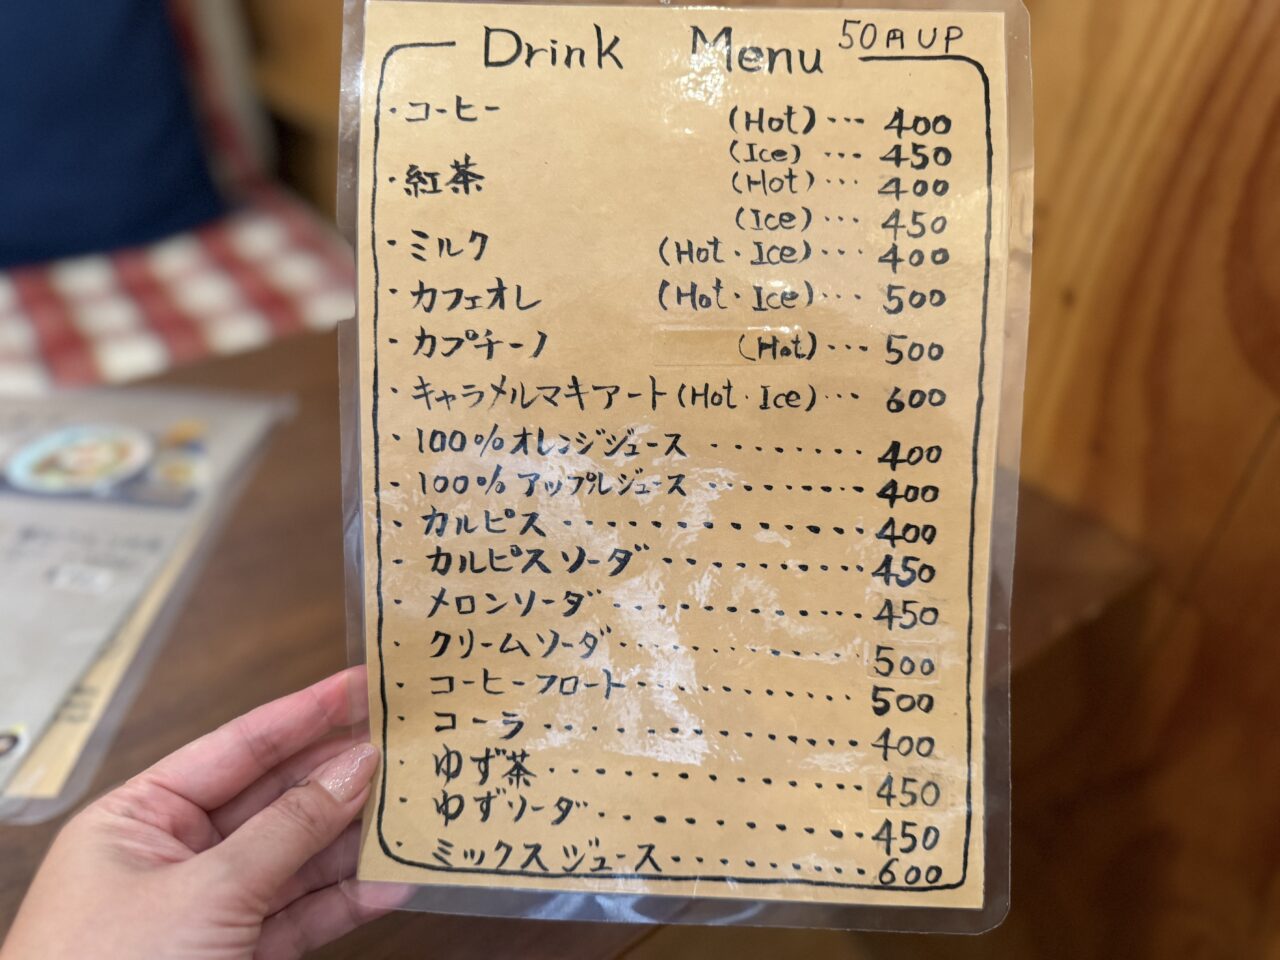 Drink Menu 50円UP
・コーヒー (Hot)・・・400
(Ice)・・・450
・紅茶 (Hot)・・・400
(Ice)・・・450
・ミルク (Hot・Ice)・・・400
・カフェオレ (Hot・Ice)・・・500
・カプチーノ (Hot)・・・500
・キャラメルマキアート(Hot・Ice)・・・600
・100%オレンジジュース ・・・・・・・400
・100%アップルジュース ・・・・・・・・400
・カルピス・・・・・・・・・・・400
・カルピスソーダ・・・・・・・・・450
・メロンソーダ・・・・・・・・・・・450
・クリームソーダ・・・・・・・・・・500
・コーヒーフロート・・・・・・・・・・500
・コーラ・・・・・・・・・・・・・400
・ゆず茶・・・・・・・・・・・・450
・ゆずソーダ・・・・・・・・・・450
・ミックスジュース・・・・・・・・600